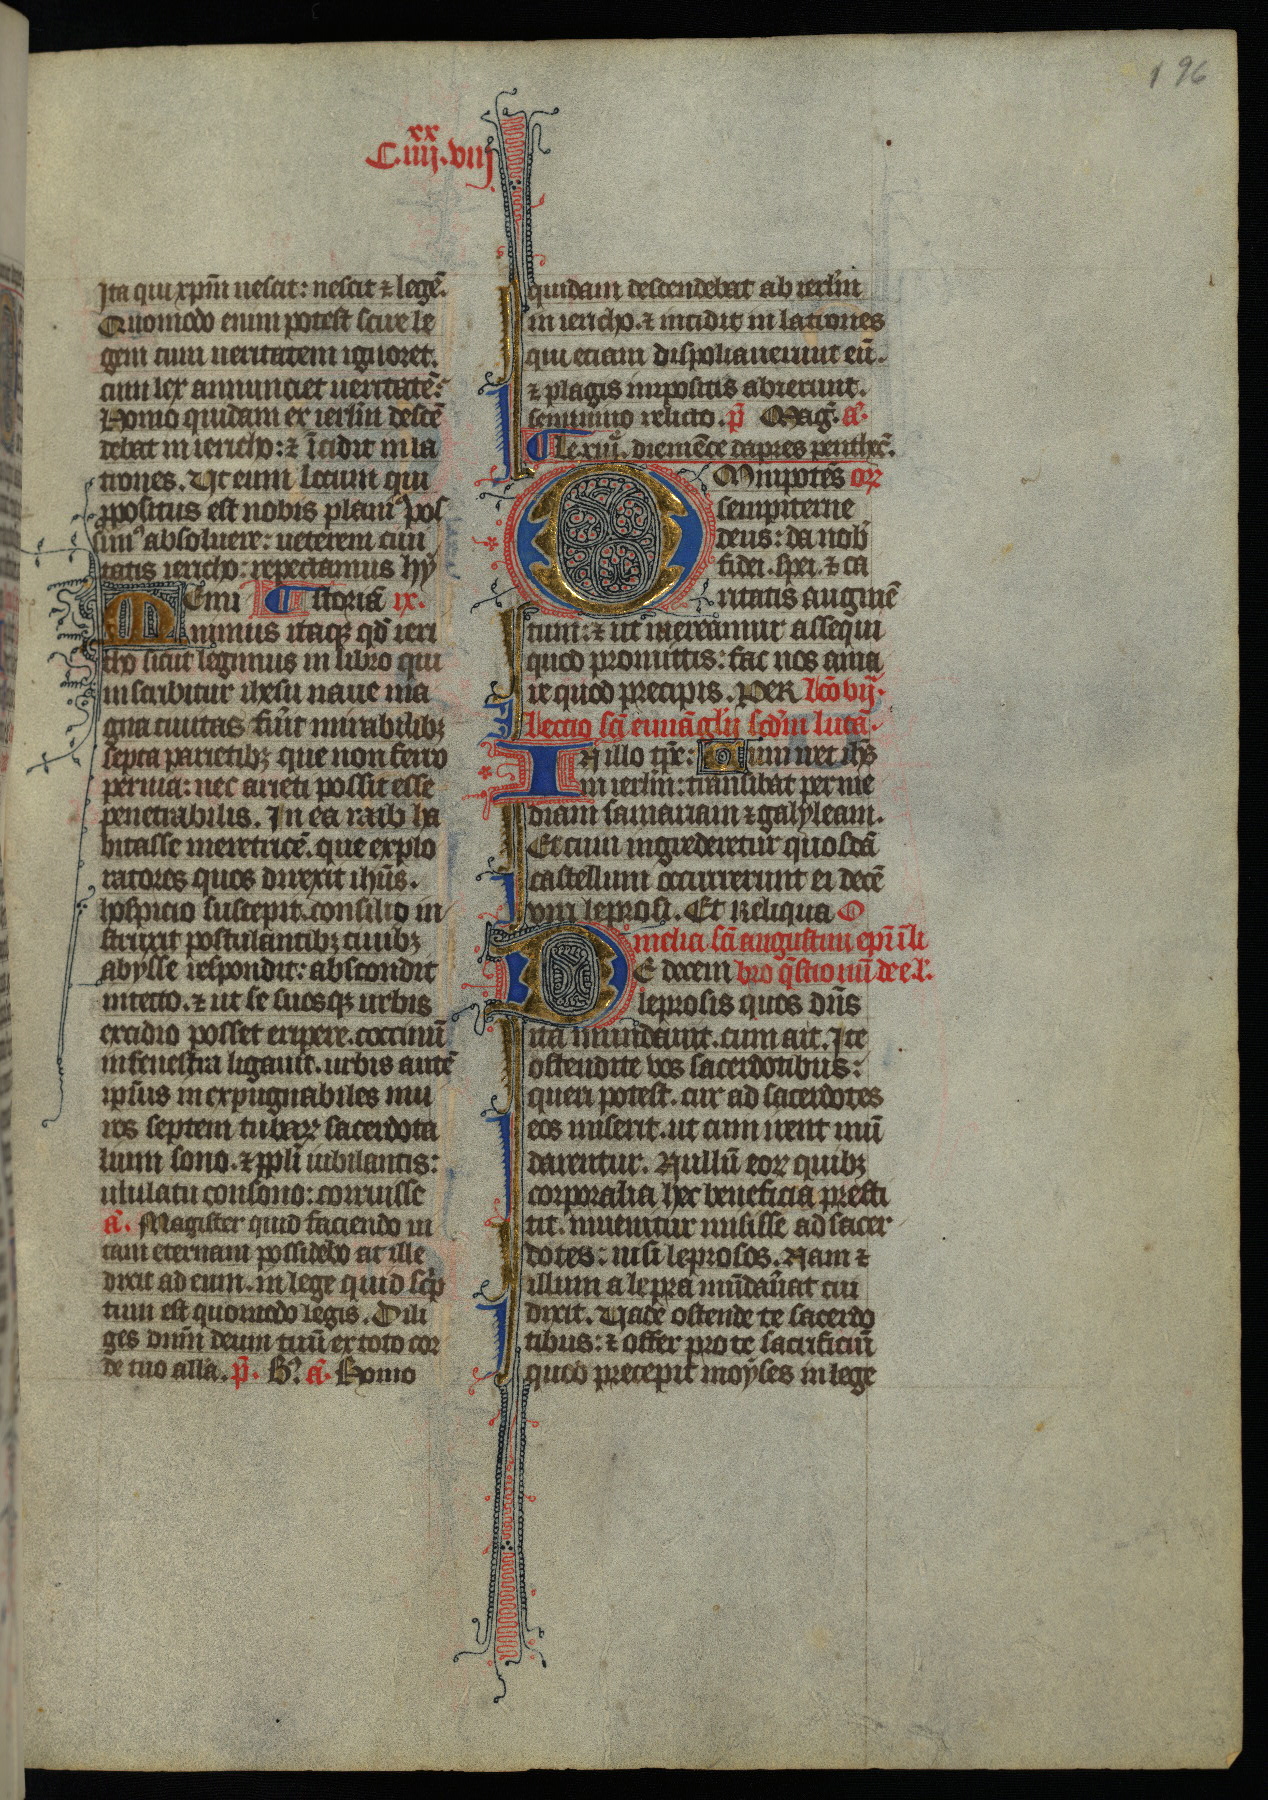 196
xx
C.iiij.viij
Ita qui xp̄m nescit: nescit ⁊ legē.
Quomodo enim potest scire le
gem cum ueritatem ignoret.
cum lex annunciet ueritatē:
Homo quidam ex ierl̄m descē
debat in iericho: ⁊ īcidit in la
trones. Ut eum locum qui
ꝓpositus est nobis planiꝰ pos
simꝰ absoluere: ueterem ciui
tatis iericho: repetamus hy
Emi storiā ix.
nimus itaqꝫ qd̄ ieri
cho sicut legimus in libro qui
inscribitur ihesu naue ma
gna ciuitas fūit mirabilibꝫ
septa parietibꝫ que non ferro
peruia: nec arieti possit esse
penetrabilis. In ea raab ha
bitasse meretricē. que explo
ratores quos direxit ihūs.
hospicio suscepit. consilio in
struxit postulantibꝫ ciuibꝫ
abysse respondit: abscondit
in tecto. ⁊ ut se suosqꝫ urbis
excidio posset eripere. coccinū
in fenestra ligauit. urbis autē
ipsius inexpugnabiles mu
ros septem tubaꝝ sacerdota
lium sono. ⁊ ppl̄i iubilantis:
ululatu consono: corruisse
a̅. Magister quid faciendo ui
tam eternam possidebo at ille
dixit ad eum. in lege quid sc̄p
tum est quomodo legis. Dili
ges dn̄m deum tuū ex toto cor
de tuo alla. p̄. B̄. a̅. Homo
quidam descendebat ab ierl̄m
in iericho. ⁊ incidit in latrones
qui etiam dispoliauerunt eū.
⁊ plagis impositis abierunt.
semiuiuo relicto. p̄ Mag̅. a̅.
Le xiiij. diemēce dapres penthec̄.
Mnipotēs oꝝ
sempiterne
deus: da nob̄
fidei. spei. ⁊ ca
ritatis augmē
tum: ⁊ ut mereamur assequi
quod promittis: fac nos ama
re quod precipis. PER lc̄o vij.
Lectio sc̄i euuāglij scd̄m lucā.
N illo tp̄e: Dum iret ihs̄
in ierl̄m: transibat per me
diam samariam ⁊ galyleam.
Et cum ingrederetur quoddā
castellum occurrerunt ei decē
viri leprosi. Et Reliqua O
melia sc̄i augustini ep̄i ī li
E decem bro q̄stionū de e.l.
leprosis quos dn̄s
ita mundauit. cum ait. Ite
ostendite vos sacerdotibus:
queri potest. cur ad sacerdotes
eos miserit. ut cum irent mū
darentur. Nullū eoꝝ quibꝫ
corporalia hec beneficia presti
tit. inuenitur misisse ad sacer
dotes: nisi leprosos. Nam ⁊
illum a lepra mūdau̅at cui
dixit. Uade ostende te sacerdo
tibus: ⁊ offer pro te sacrificiū
quod precepit moyses in lege